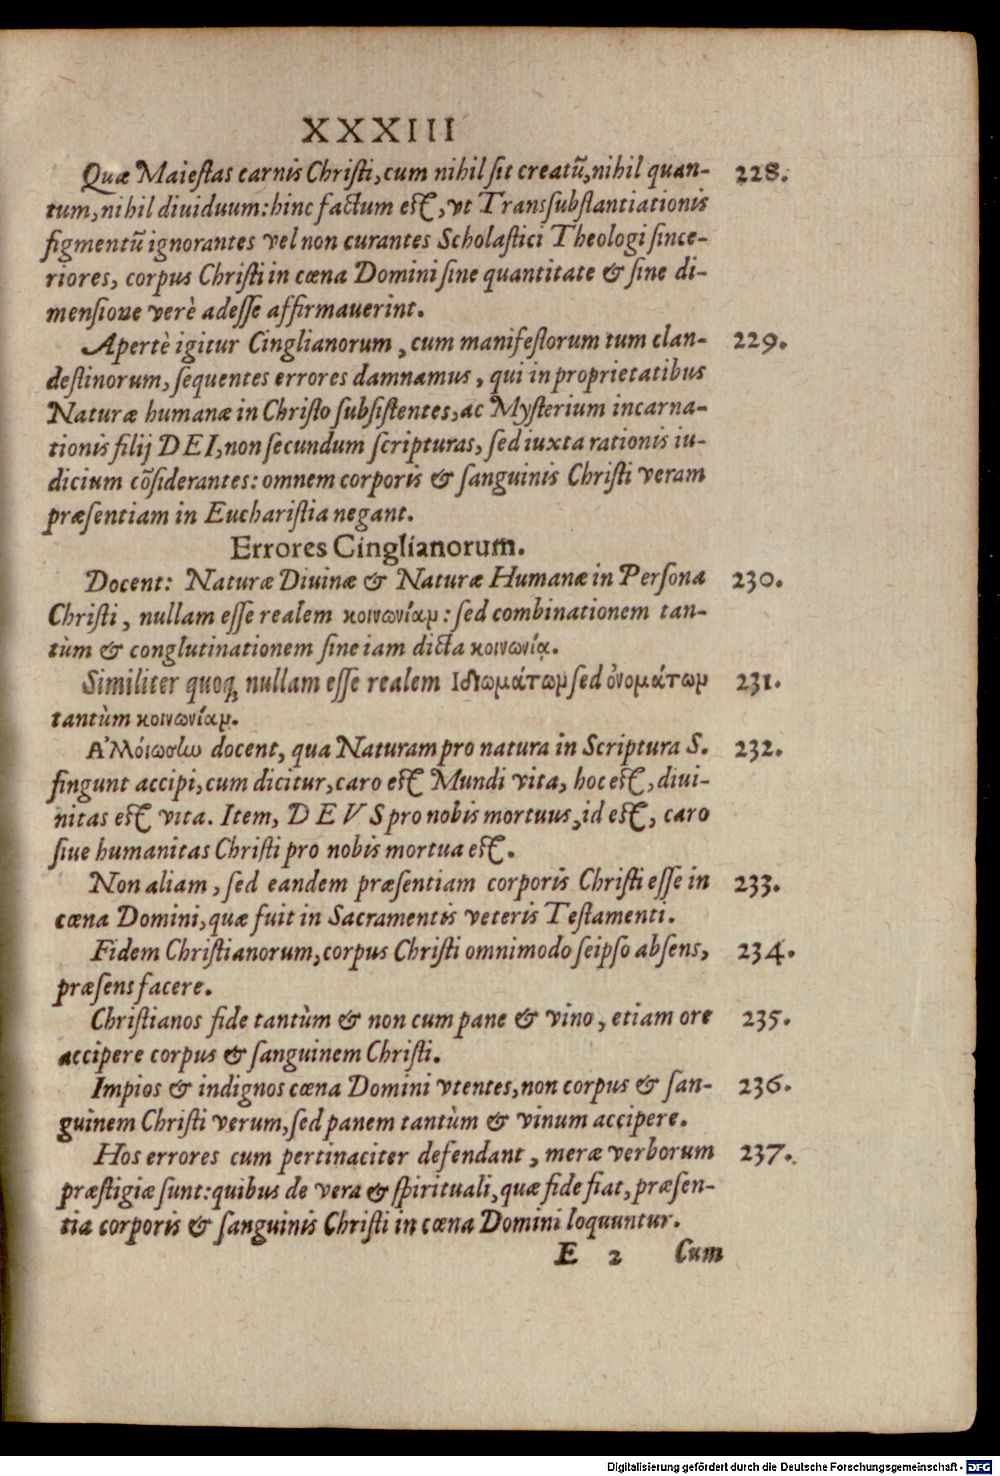 XXXIII
Quæ Maiestas carnis Christi, cum nihil sit creatũ, nihil quan- 228.
tum, nihil diuiduum: hinc factum est, vt Transsubstantiationis
figmentũ ignorantes vel non curantes Scholastici Theologi since-
riores, corpus Christi in cœna Domini sine quantitate & sine di-
mensione verè adesse affirmauerint.
Apertè igitur Cinglianorum, cum manifestorum tum clan- 229.
destinorum, sequentes errores damnamus, qui in proprietatibus
Naturæ humanæ in Christo subsistentes, ac Mysterium incarna-
tionis filij DEI, non secundum scripturas, sed iuxta rationis iu-
dicium cõsiderantes: omnem corporis & sanguinis Christi veram
præsentiam in Eucharistia negant.
Errores Cinglianorum.
Docent: Naturæ Diuinæ & Naturæ Humanæ in Persona 230.
Christi, nullam esse realem κοινωνίαμ: sed combinationem tan-
tùm & conglutinationem sine iam dicta κοινωνίᾳ.
Similiter quoq; nullam esse realem Ιδιωμάτωμ sed ὀνομάτωμ 231.
tantùm κοινωνίαμ.
Ἀλλόιωσιν docent, qua Naturam pro natura in Scriptura S. 232.
fingunt accipi, cum dicitur, caro est Mundi vita, hoc est, diui-
nitas est vita. Item, DEVS pro nobis mortuus, id est, caro
siue humanitas Christi pro nobis mortua est.
Non aliam, sed eandem præsentiam corporis Christi esse in 233.
cœna Domini, quæ fuit in Sacramentis veteris Testamenti.
Fidem Christianorum, corpus Christi omnimodo seipso absens, 234.
præsens facere.
Christianos fide tantùm & non cum pane & vino, etiam ore 235.
accipere corpus & sanguinem Christi.
Impios & indignos cœna Domini vtentes, non corpus & san- 236.
guinem Christi verum, sed panem tantùm & vinum accipere.
Hos errores cum pertinaciter defendant, meræ verborum 237.
præstigiæ sunt: quibus de vera & spirituali, quæ fide fiat, præsen-
tia corporis & sanguinis Christi in cœna Domini loquuntur.
E 2 Cum
Digitalisierung gefördert durch die Deutsche Forschungsgemeinschaft - DFG